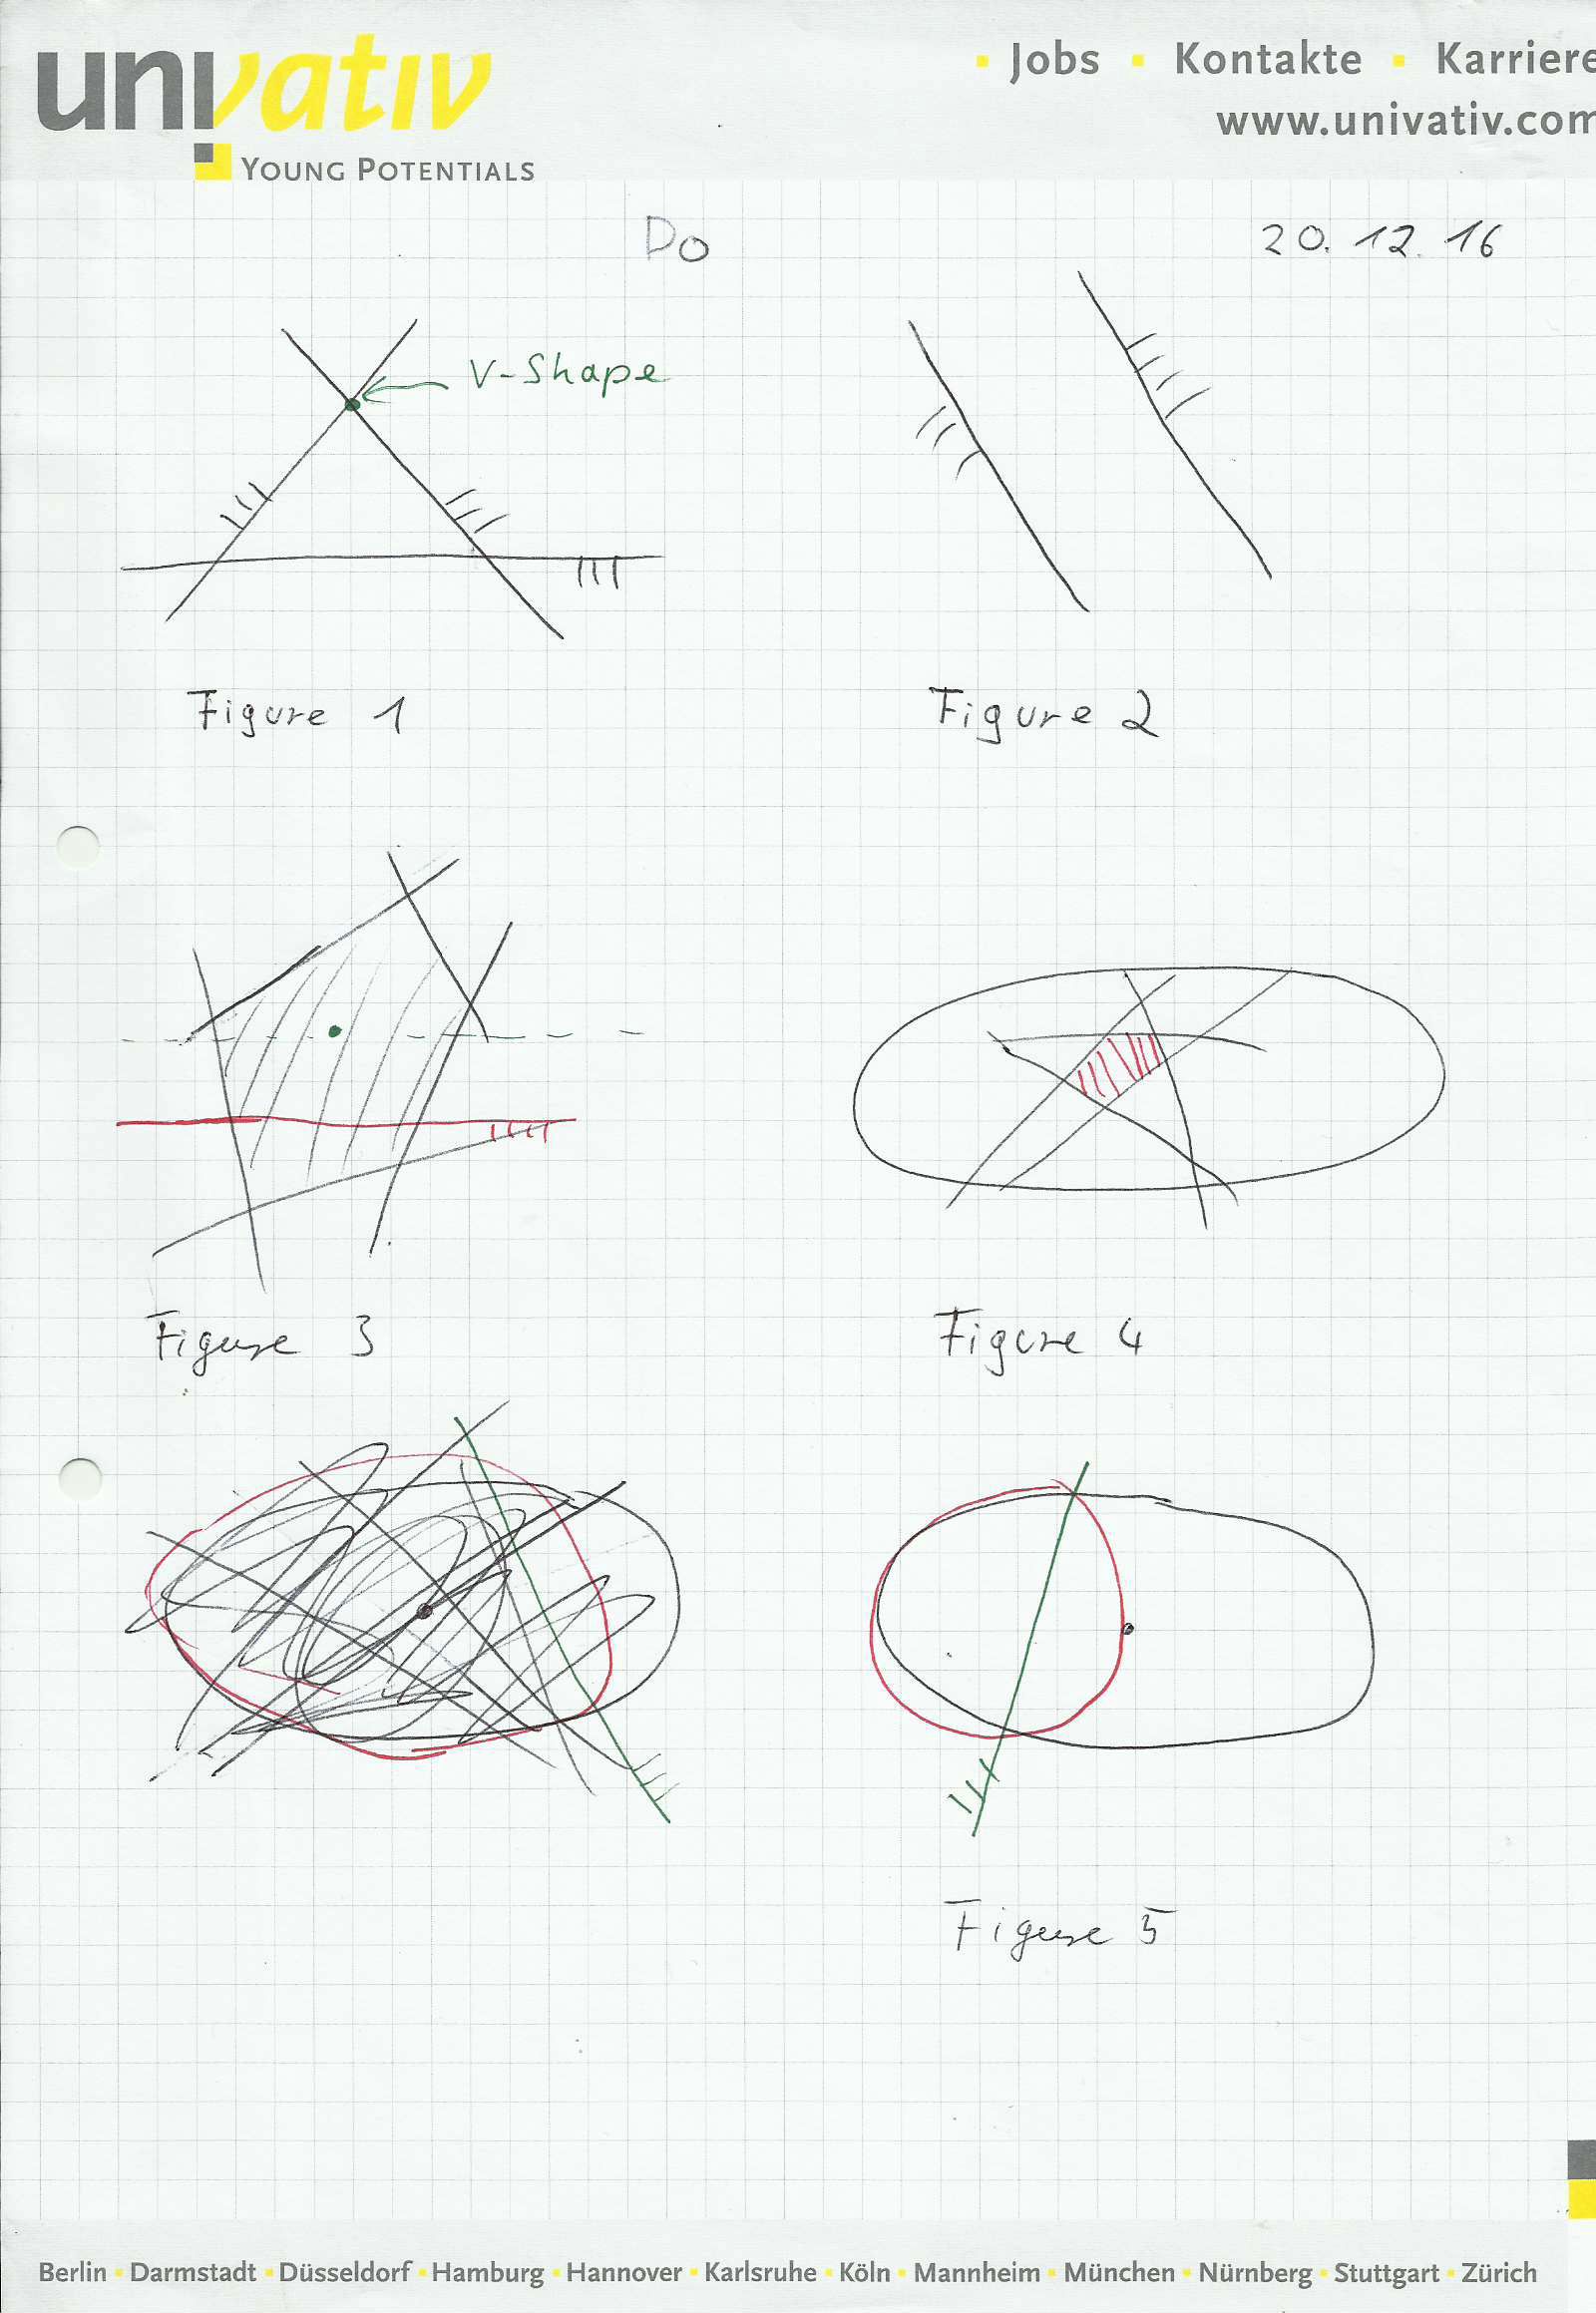 univativ
YOUNG POTENTIALS
Jobs ▪ Kontakte ▪ Karriere
www.univativ.com
Do
20. 12. 16
V-Shape
Figure 1
Figure 2
Figure 3
Figure 4
Figure 5
Berlin ▪ Darmstadt ▪ Düsseldorf ▪ Hamburg ▪ Hannover ▪ Karlsruhe ▪ Köln ▪ Mannheim ▪ München ▪ Nürnberg ▪ Stuttgart ▪ Zürich